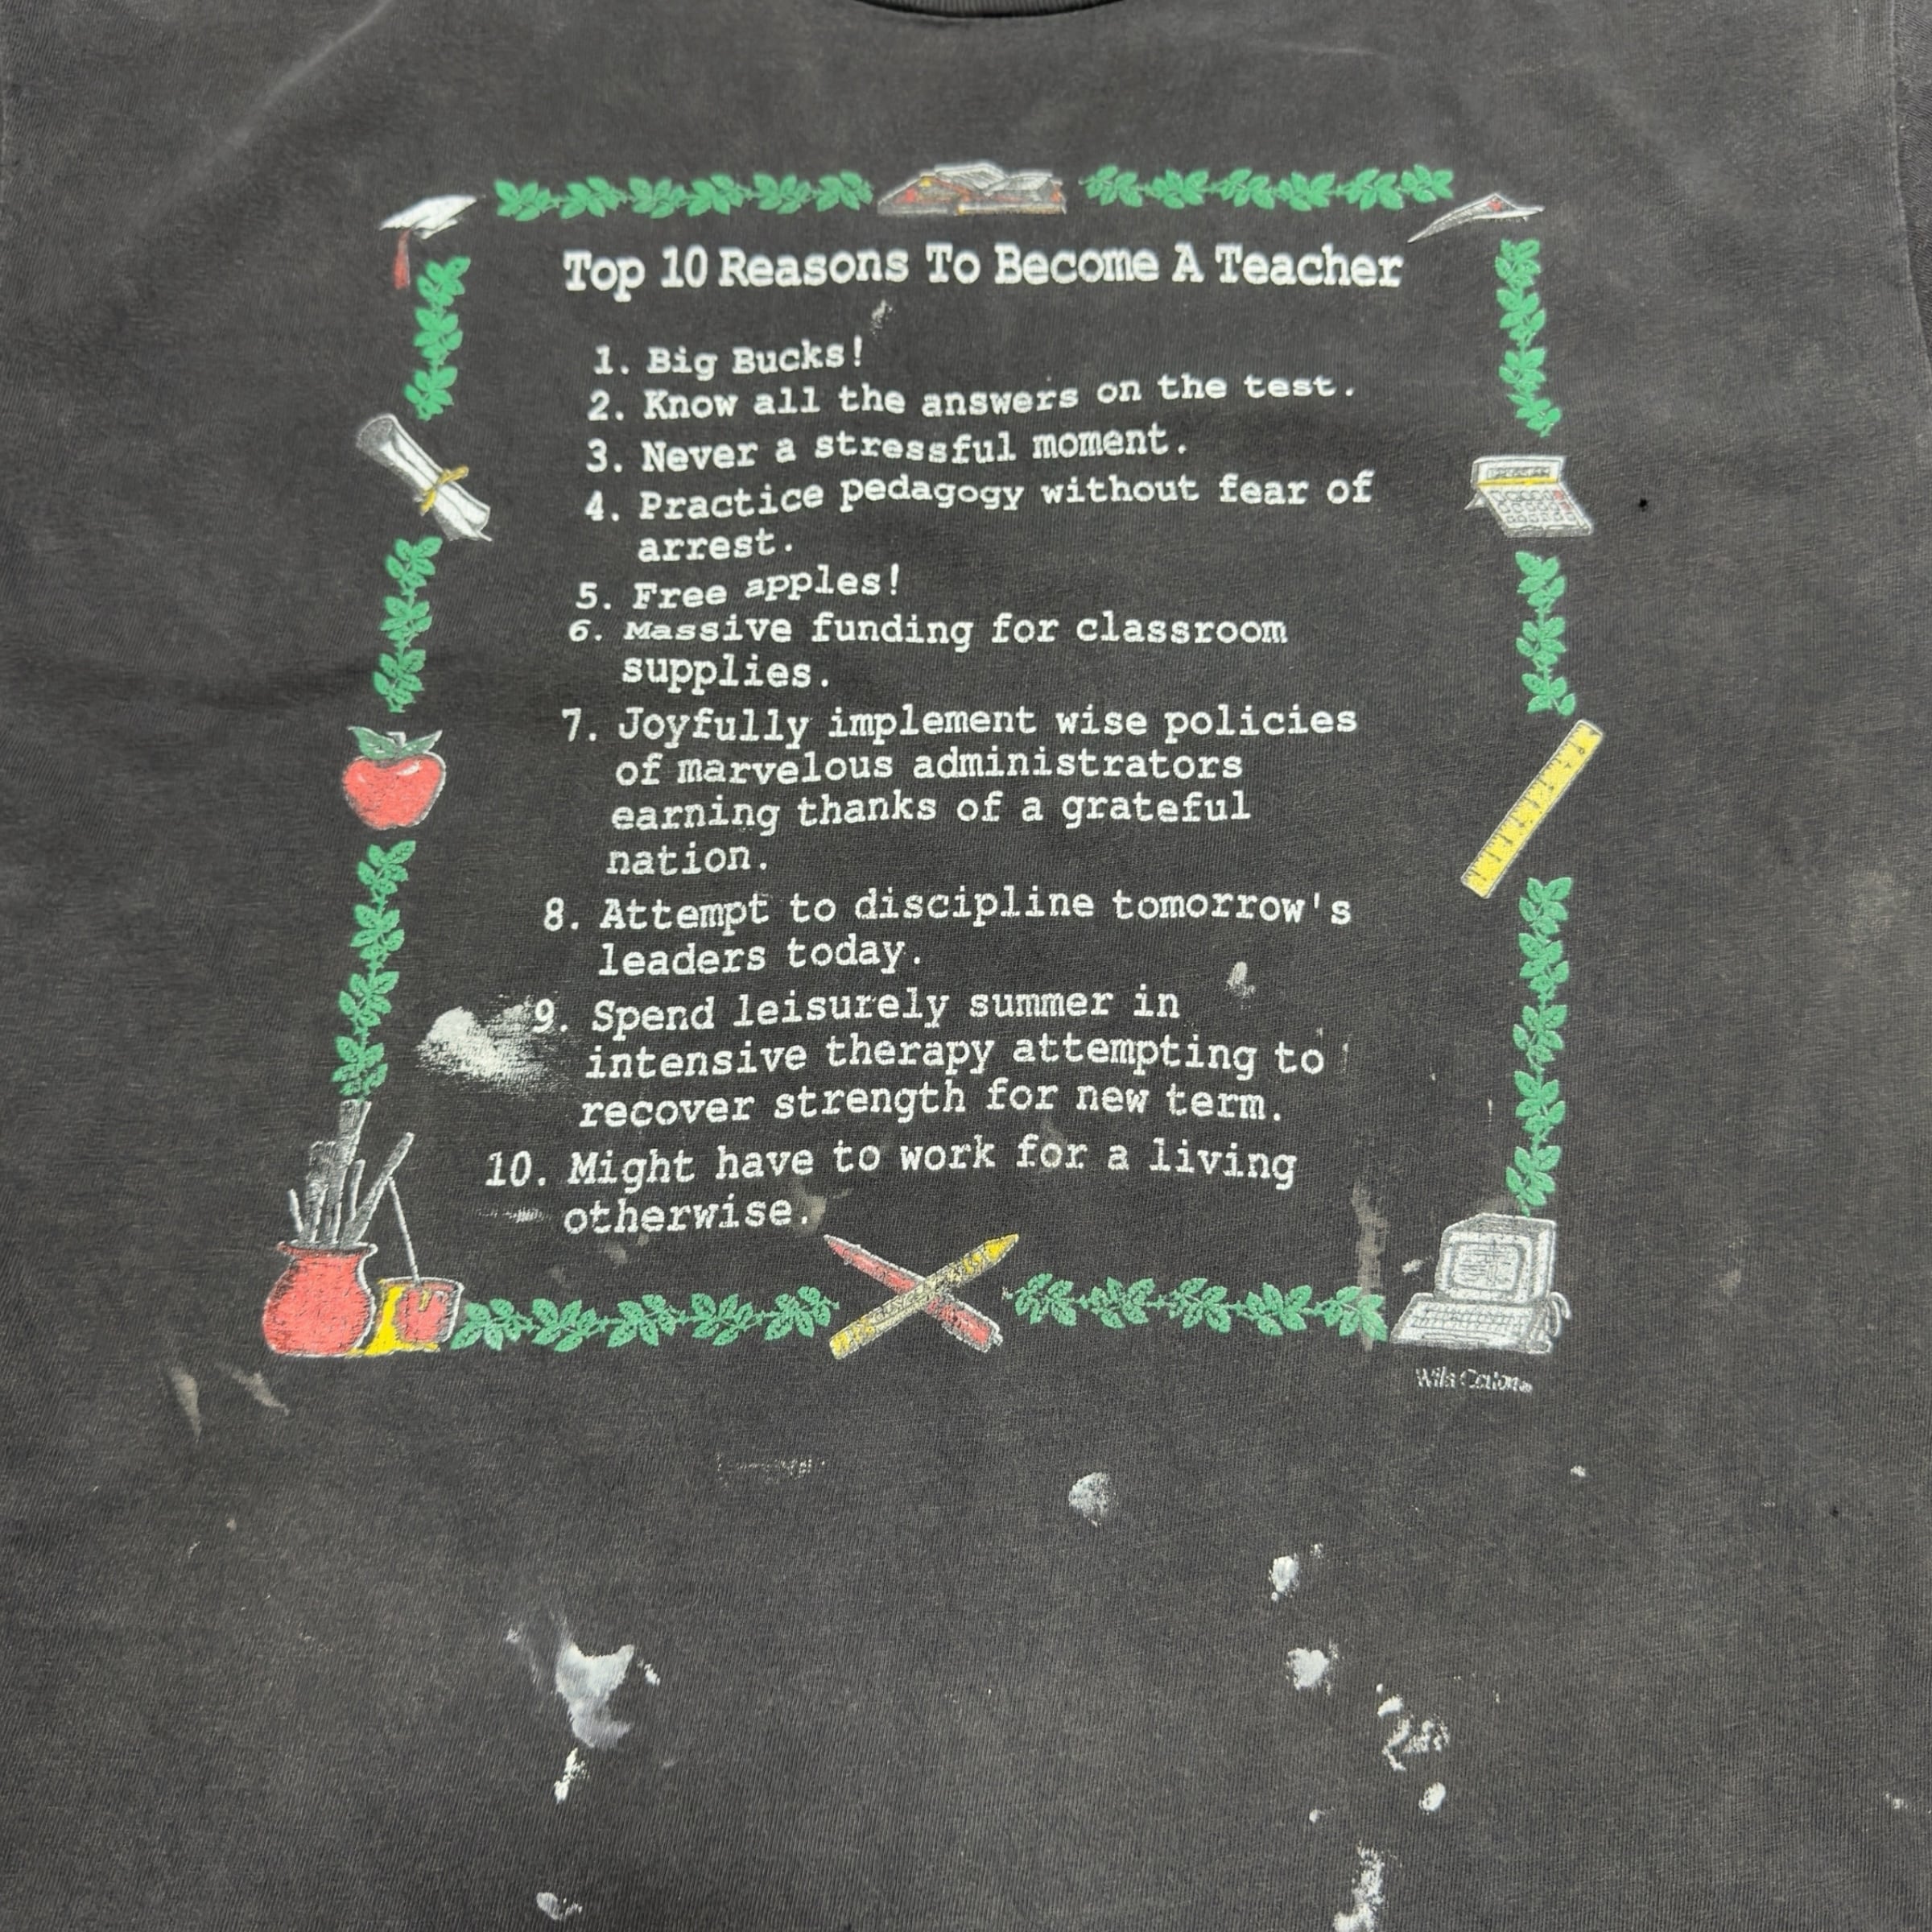 Top 10 Reasons To Become A Teacher
1. Big Bucks!
2. Know all the answers on the test.
3. Never a stressful moment.
4. Practice pedagogy without fear of
arrest.
5. Free apples!
6. Massive funding for classroom
supplies.
7. Joyfully implement wise policies
of marvelous administrators
earning thanks of a grateful
nation.
8. Attempt to discipline tomorrow's
leaders today.
9. Spend leisurely summer in
intensive therapy attempting to
recover strength for new term.
10. Might have to work for a living
otherwise.